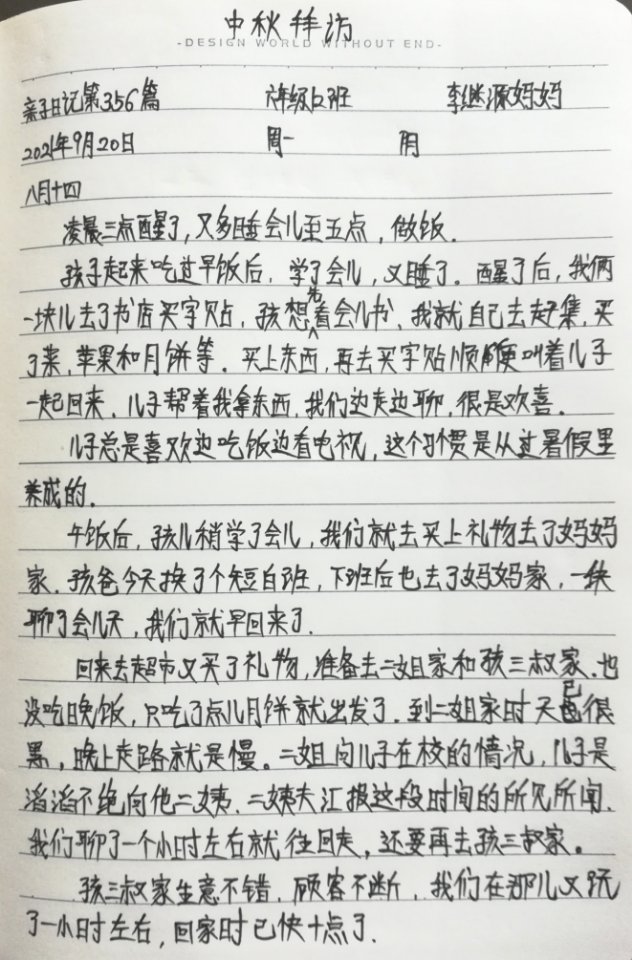 中秋拜访
-DESIGN WORLD WITHOUT END-
亲子日记第356篇 六年级12班 李继源妈妈
2021年9月20日 周一 阴
八月十四
凌晨三点醒了,又多睡会儿至五点,做饭.
孩子起来吃过早饭后,学了会儿,又睡了.醒了后,我俩
一块儿去了书店买字贴,孩想先看会儿书,我就自己去赶集,买
了菜,苹果和月饼等.买上东西,再去买字贴顺便叫着儿子
一起回来.儿子帮着我拿东西,我们边走边聊,很是欢喜。
儿子总是喜欢边吃饭边看电视,这个习惯是从过暑假里
养成的.
午饭后,孩儿稍学了会儿,我们就去买上礼物去了妈妈
家.孩爸今天换了个短白班,下班后也去了妈妈家,一块
聊了会儿天,我们就早回来了.
回来去超市又买了礼物,准备去二姐家和孩三叔家.也
没吃晚饭,只吃了点儿月饼就出发了.到二姐家时天已很
黑,晚上走路就是慢。二姐问儿子在校的情况,儿子是
滔滔不绝向他二姨.二姨夫汇报这段时间的所见所闻.
我们聊了一个小时左右就往回走,还要再去孩三叔家。
孩三叔家生意不错.顾客不断.我们在那儿又玩
了一小时左右,回家时已快十点了.